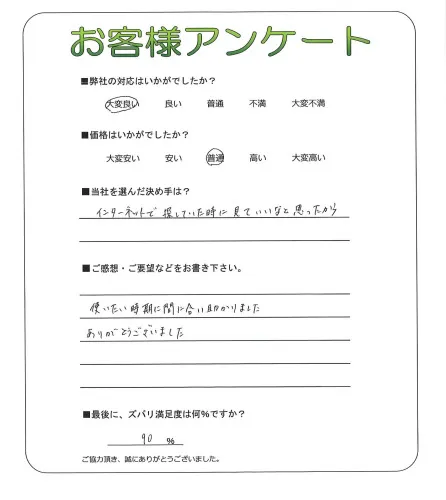 お客様アンケート
■弊社の対応はいかがでしたか？
大変良い 良い 普通 不満 大変不満
■価格はいかがでしたか？
大変安い 安い 普通 高い 大変高い
■当社を選んだ決め手は？
インターネットで 探していた時に 見ていいなと思ったから
■ご感想・ご要望などをお書き下さい。
使いたい時期に間に合い助かりました
ありがとうございました
■最後に、ズバリ満足度は何%ですか？
90 %
ご協力頂き、誠にありがとうございました。